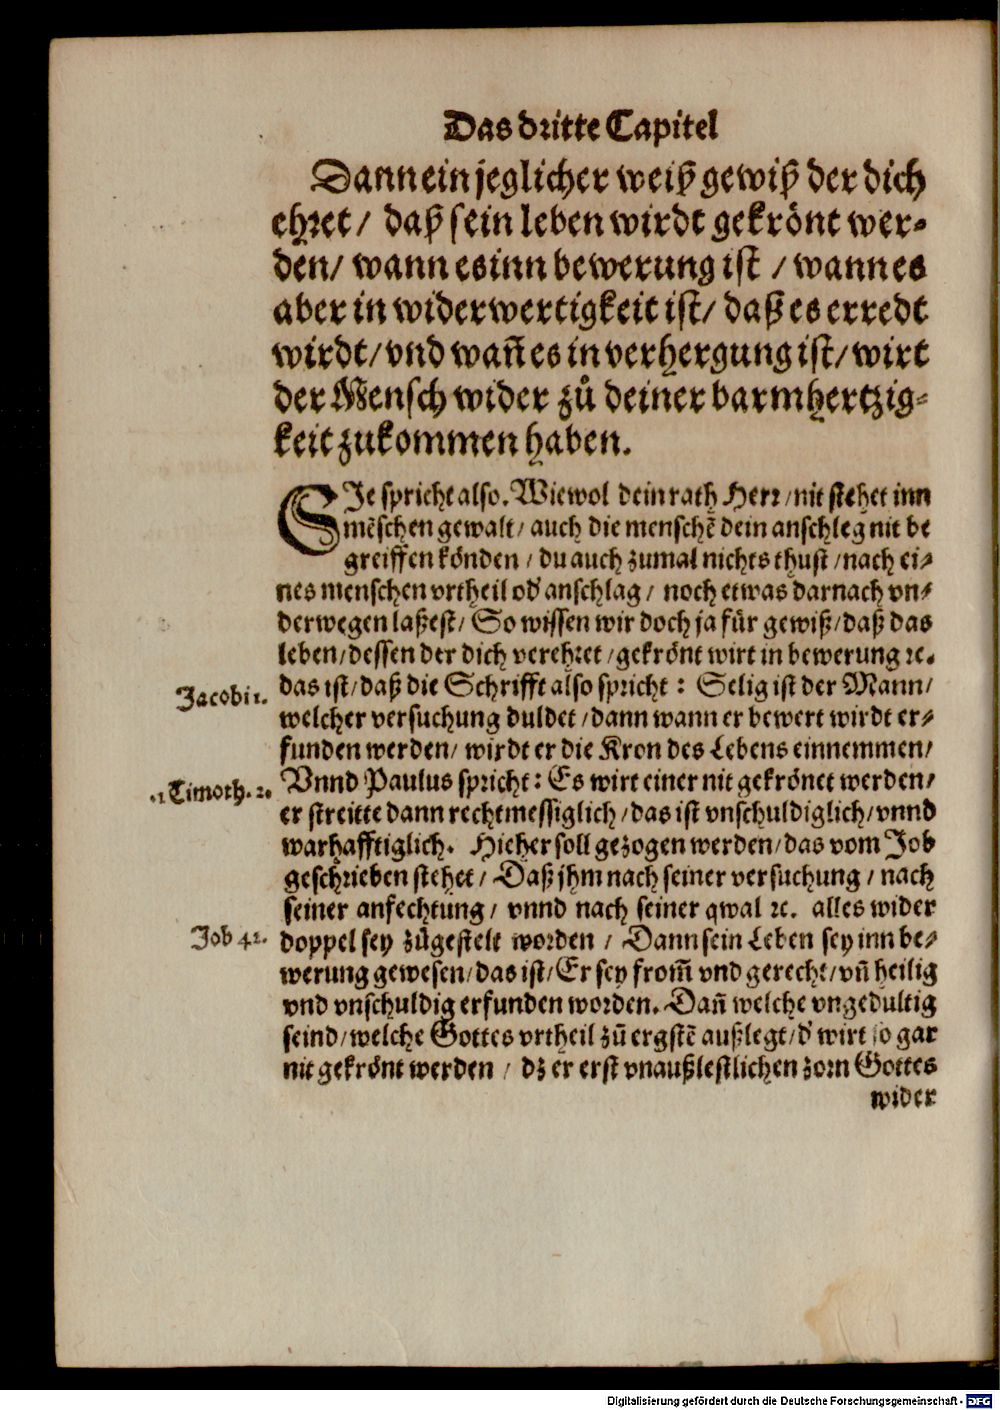 Das dritte Capitel
Dann ein jeglicher weiß gewiß der dich
ehret / daß sein leben wirdt gekrönt wer-
den / wann es inn bewerung ist / wann es
aber in widerwertigkeit ist / daß es erredt
wirdt / vnd wañ es in verhergung ist / wirt
der Mensch wider zů deiner barmhertzig-
keit zukommen haben.
SJe spricht also. Wiewol dein rath Herr / nit stehet inn
mẽschen gewalt / auch die menschẽ dein anschleg nit be
greiffen könden / du auch zumal nichts thust / nach ei-
nes menschen vrtheil od' anschlag / noch etwas darnach vn-
derwegen laßest / So wissen wir doch ja für gewiß / daß das
leben / dessen der dich verehret / gekrönt wirt in bewerung ꝛc.
Jacobi 1.
das ist / daß die Schrifft also spricht : Selig ist der Mann /
welcher versuchung duldet / dann wann er bewert wirdt er-
funden werden / wirdt er die Kron des Lebens einnemmen /
Timoth. 2.
Vnnd Paulus spricht : Es wirt einer nit gekrönet werden /
er streitte dann rechtmessiglich / das ist vnschuldiglich / vnnd
warhafftiglich. Hieher soll gezogen werden / das vom Job
geschrieben stehet / Daß jhm nach seiner versuchung / nach
seiner anfechtung / vnnd nach seiner qwal ꝛc. alles wider
Job 42.
doppel sey zůgestelt worden / Dann sein Leben sey inn be-
werung gewesen / das ist / Er sey from̃ vnd gerecht / vñ heilig
vnd vnschuldig erfunden worden. Dañ welche vngedultig
seind / welche Gottes vrtheil zů ergstẽ außlegt / d' wirt so gar
nit gekrönt werden / dz er erst vnaußlestlichen zorn Gottes
wider
Digitalisierung gefördert durch die Deutsche Forschungsgemeinschaft - DFG